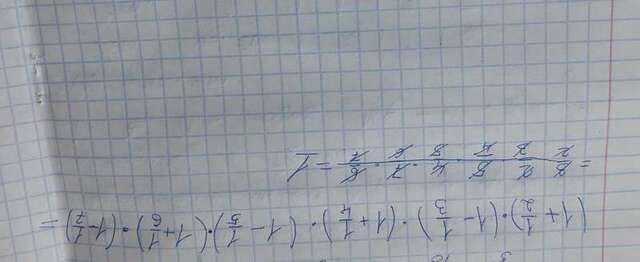 (1+1/2)·(1-1/3)·(1+1/4)·(1-1/5)·(1+1/6)·(1-1/7)=
=3/2·2/3·5/4·4/5·7/6·6/7=1